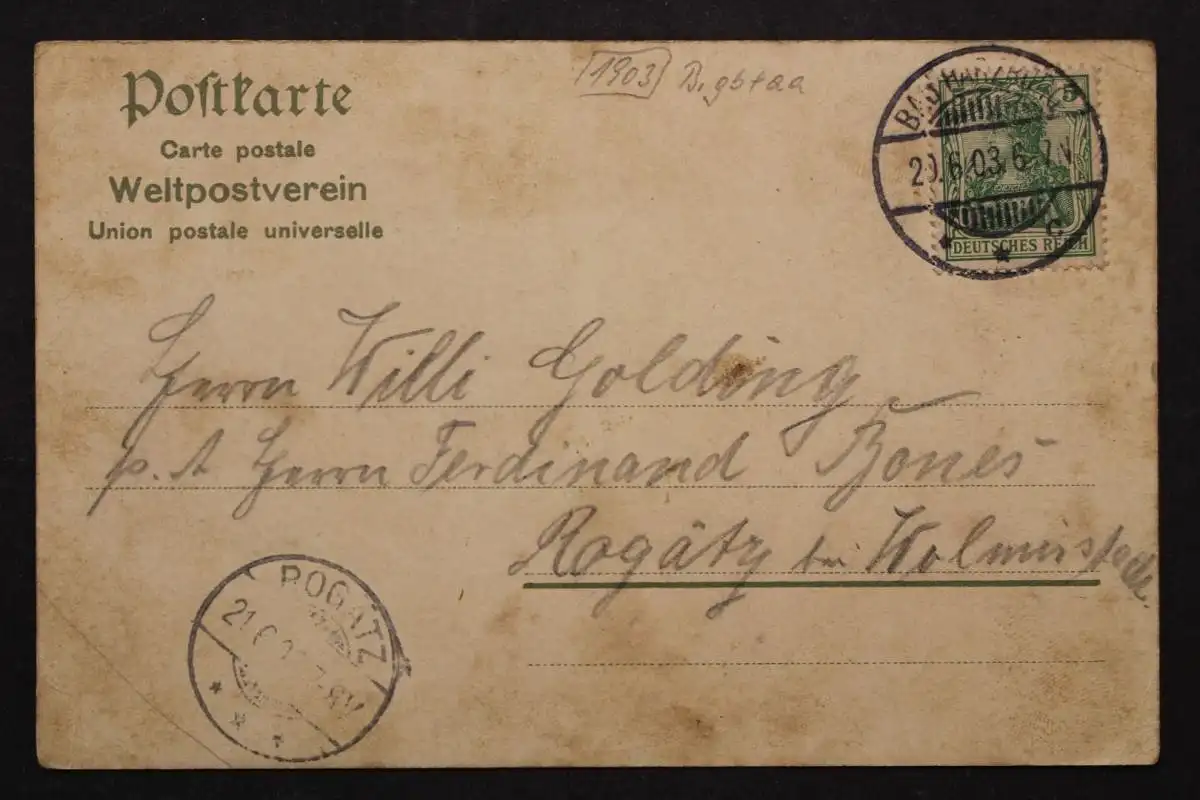 Postkarte
Carte postale
Weltpostverein
Union postale universelle
1903
BAD HARZBURG
20.6.03.6-7V.
* * c
DEUTSCHES REICH
5
Herrn Willi Golding
p. A Herrn Ferdinand Bones
Rogätz bei Wolmirstedt.
ROGÄTZ
21.6. 7-8V
* * *